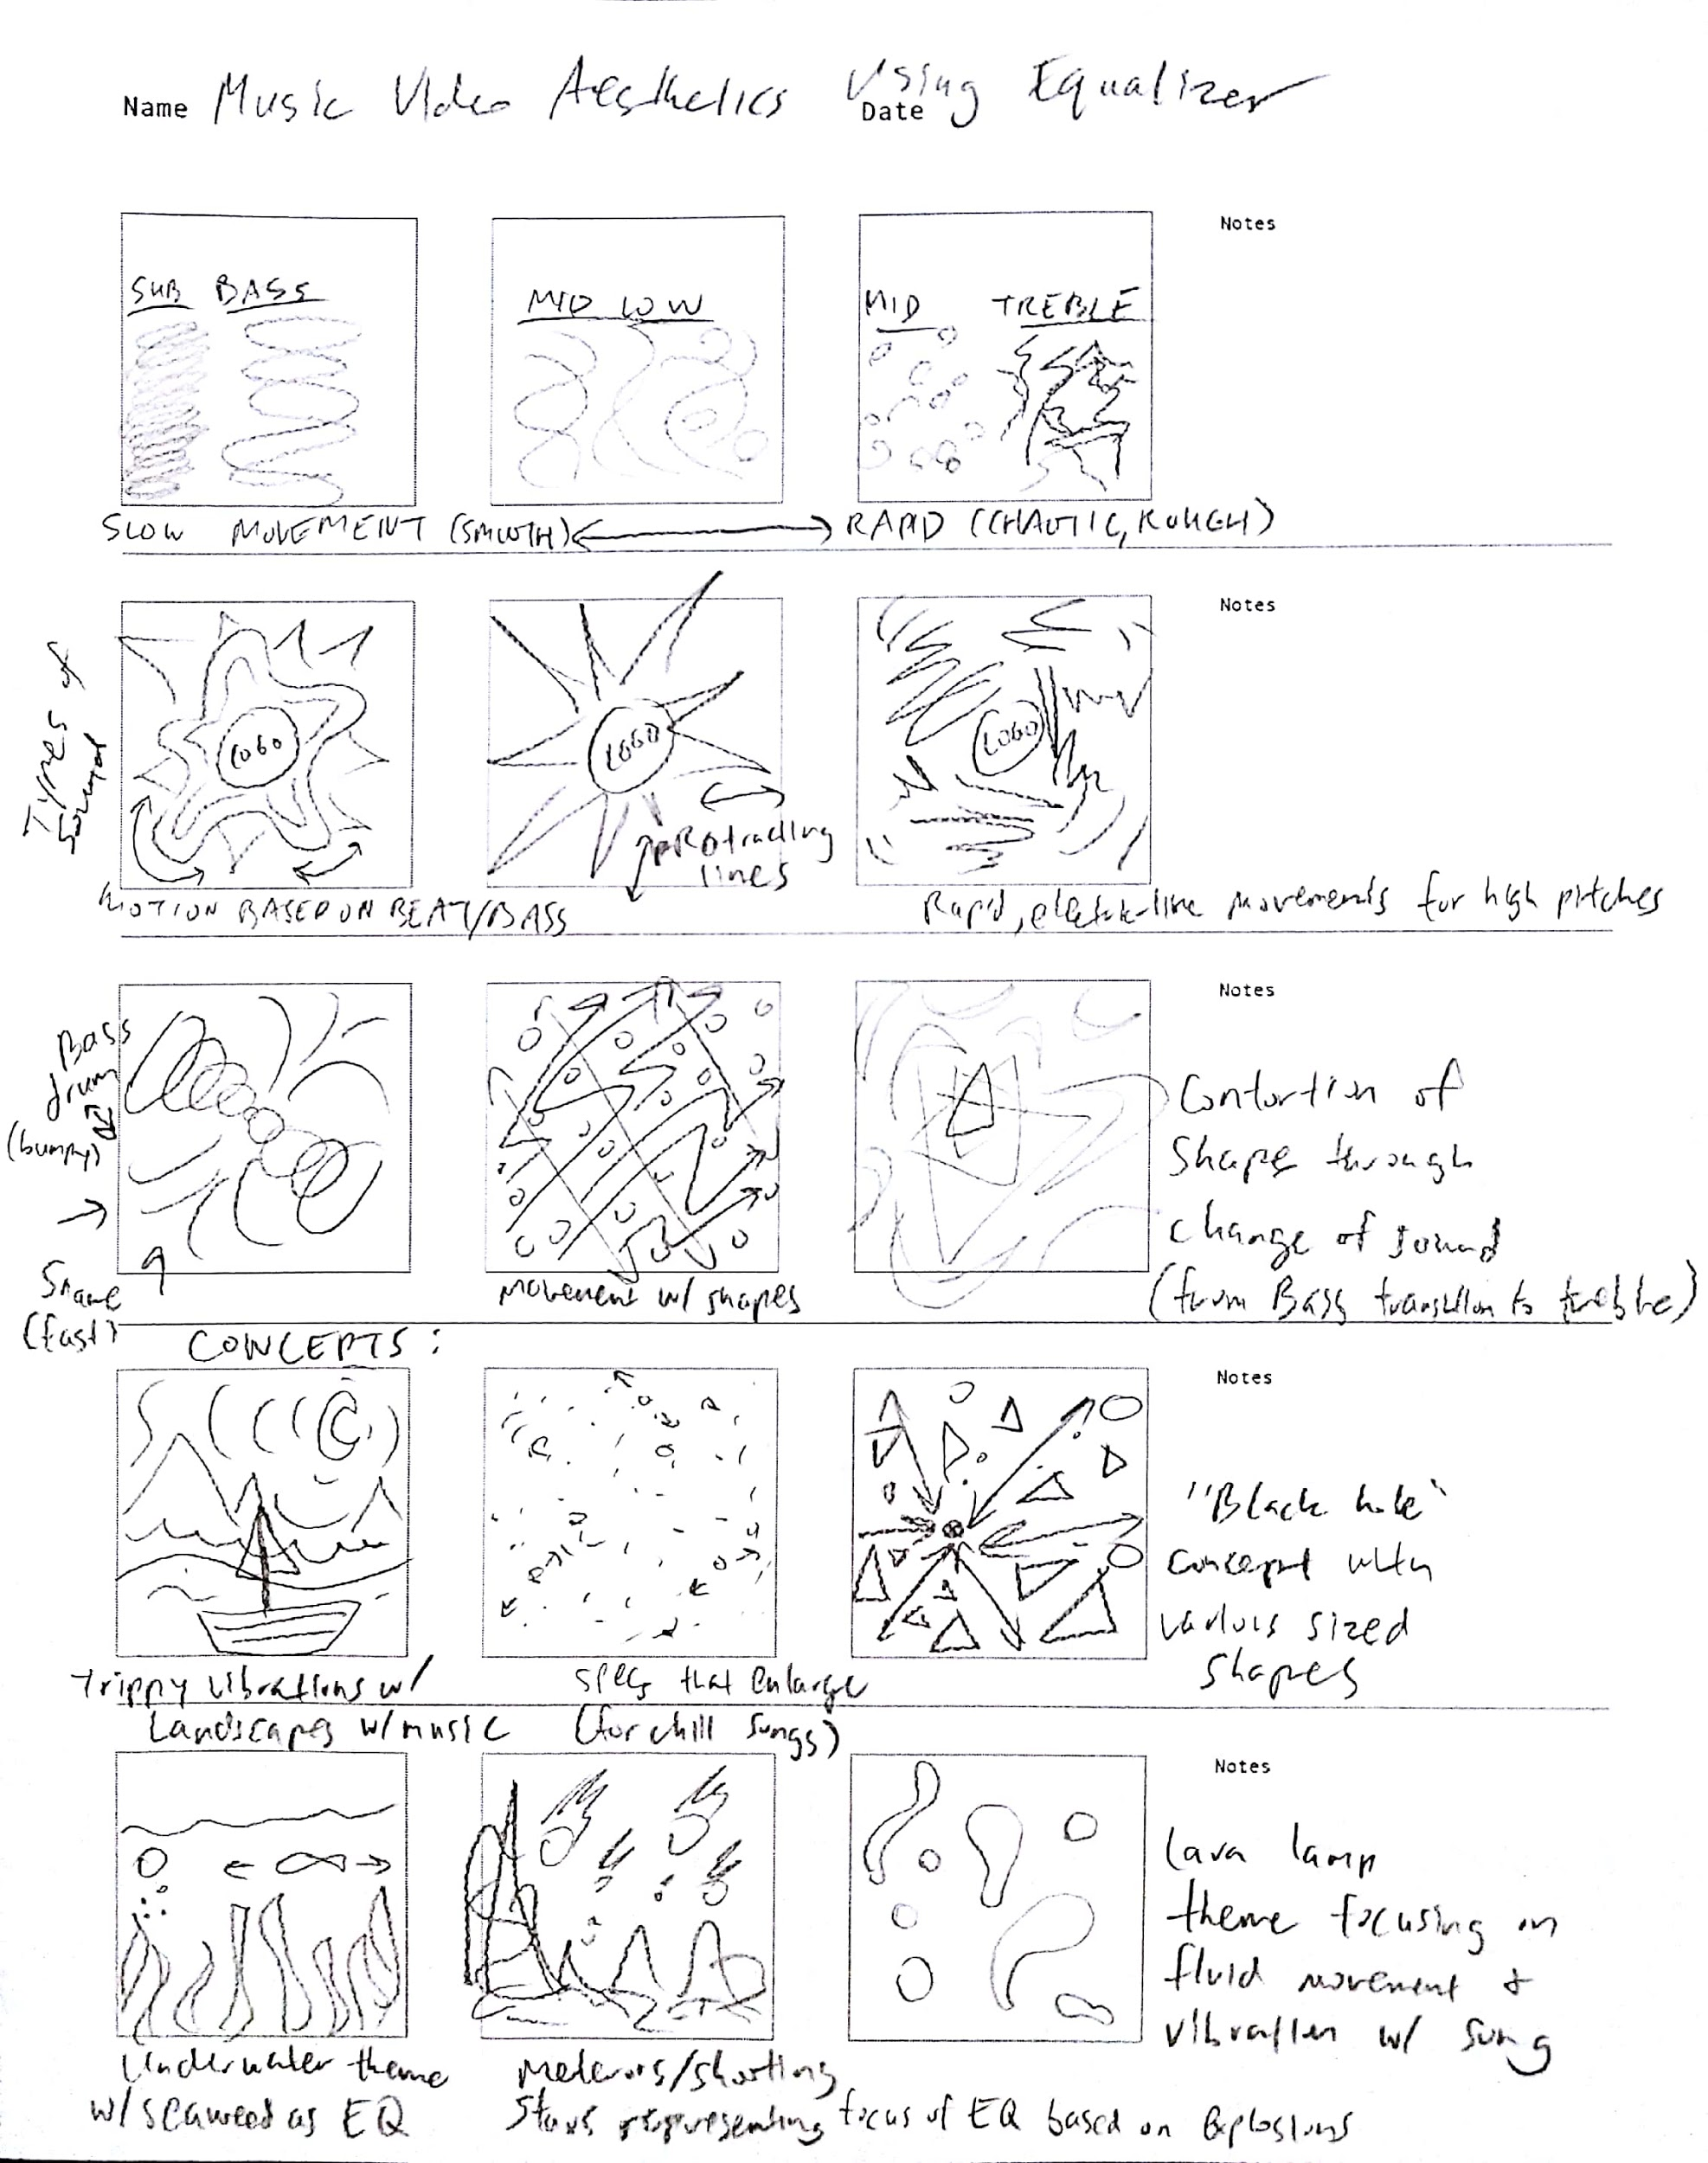 Name Music Video Aesthetics Using Equalizer
Date
Notes
SUB BASS
MID LOW
MID TREBLE
SLOW MOVEMENT (SMOOTH) RAPID (CHAOTIC, ROUGH)
Notes
Types of
Sound
LOGO
LOGO
LOGO
PROtruding
lines
MOTION BASED ON BEAT/BASS
Rapid, movements for high pitches
Notes
Bass
drum
(bumpy)
Snare
(fast)
Movement w/ shapes
Contortion of
Shape through
change of sound
(from Bass transition to treble)
CONCEPTS:
Notes
Trippy vibrations w/
Landscapes w/ music
specs that enlarge
(for chill songs)
"Black hole"
concept with
various sized
shapes
Notes
Underwater theme
w/ seaweed as EQ
Meteors/shooting
Stars representing focus of EQ based on Explosions
Lava lamp
theme focusing on
fluid movement &
vibration w/ song